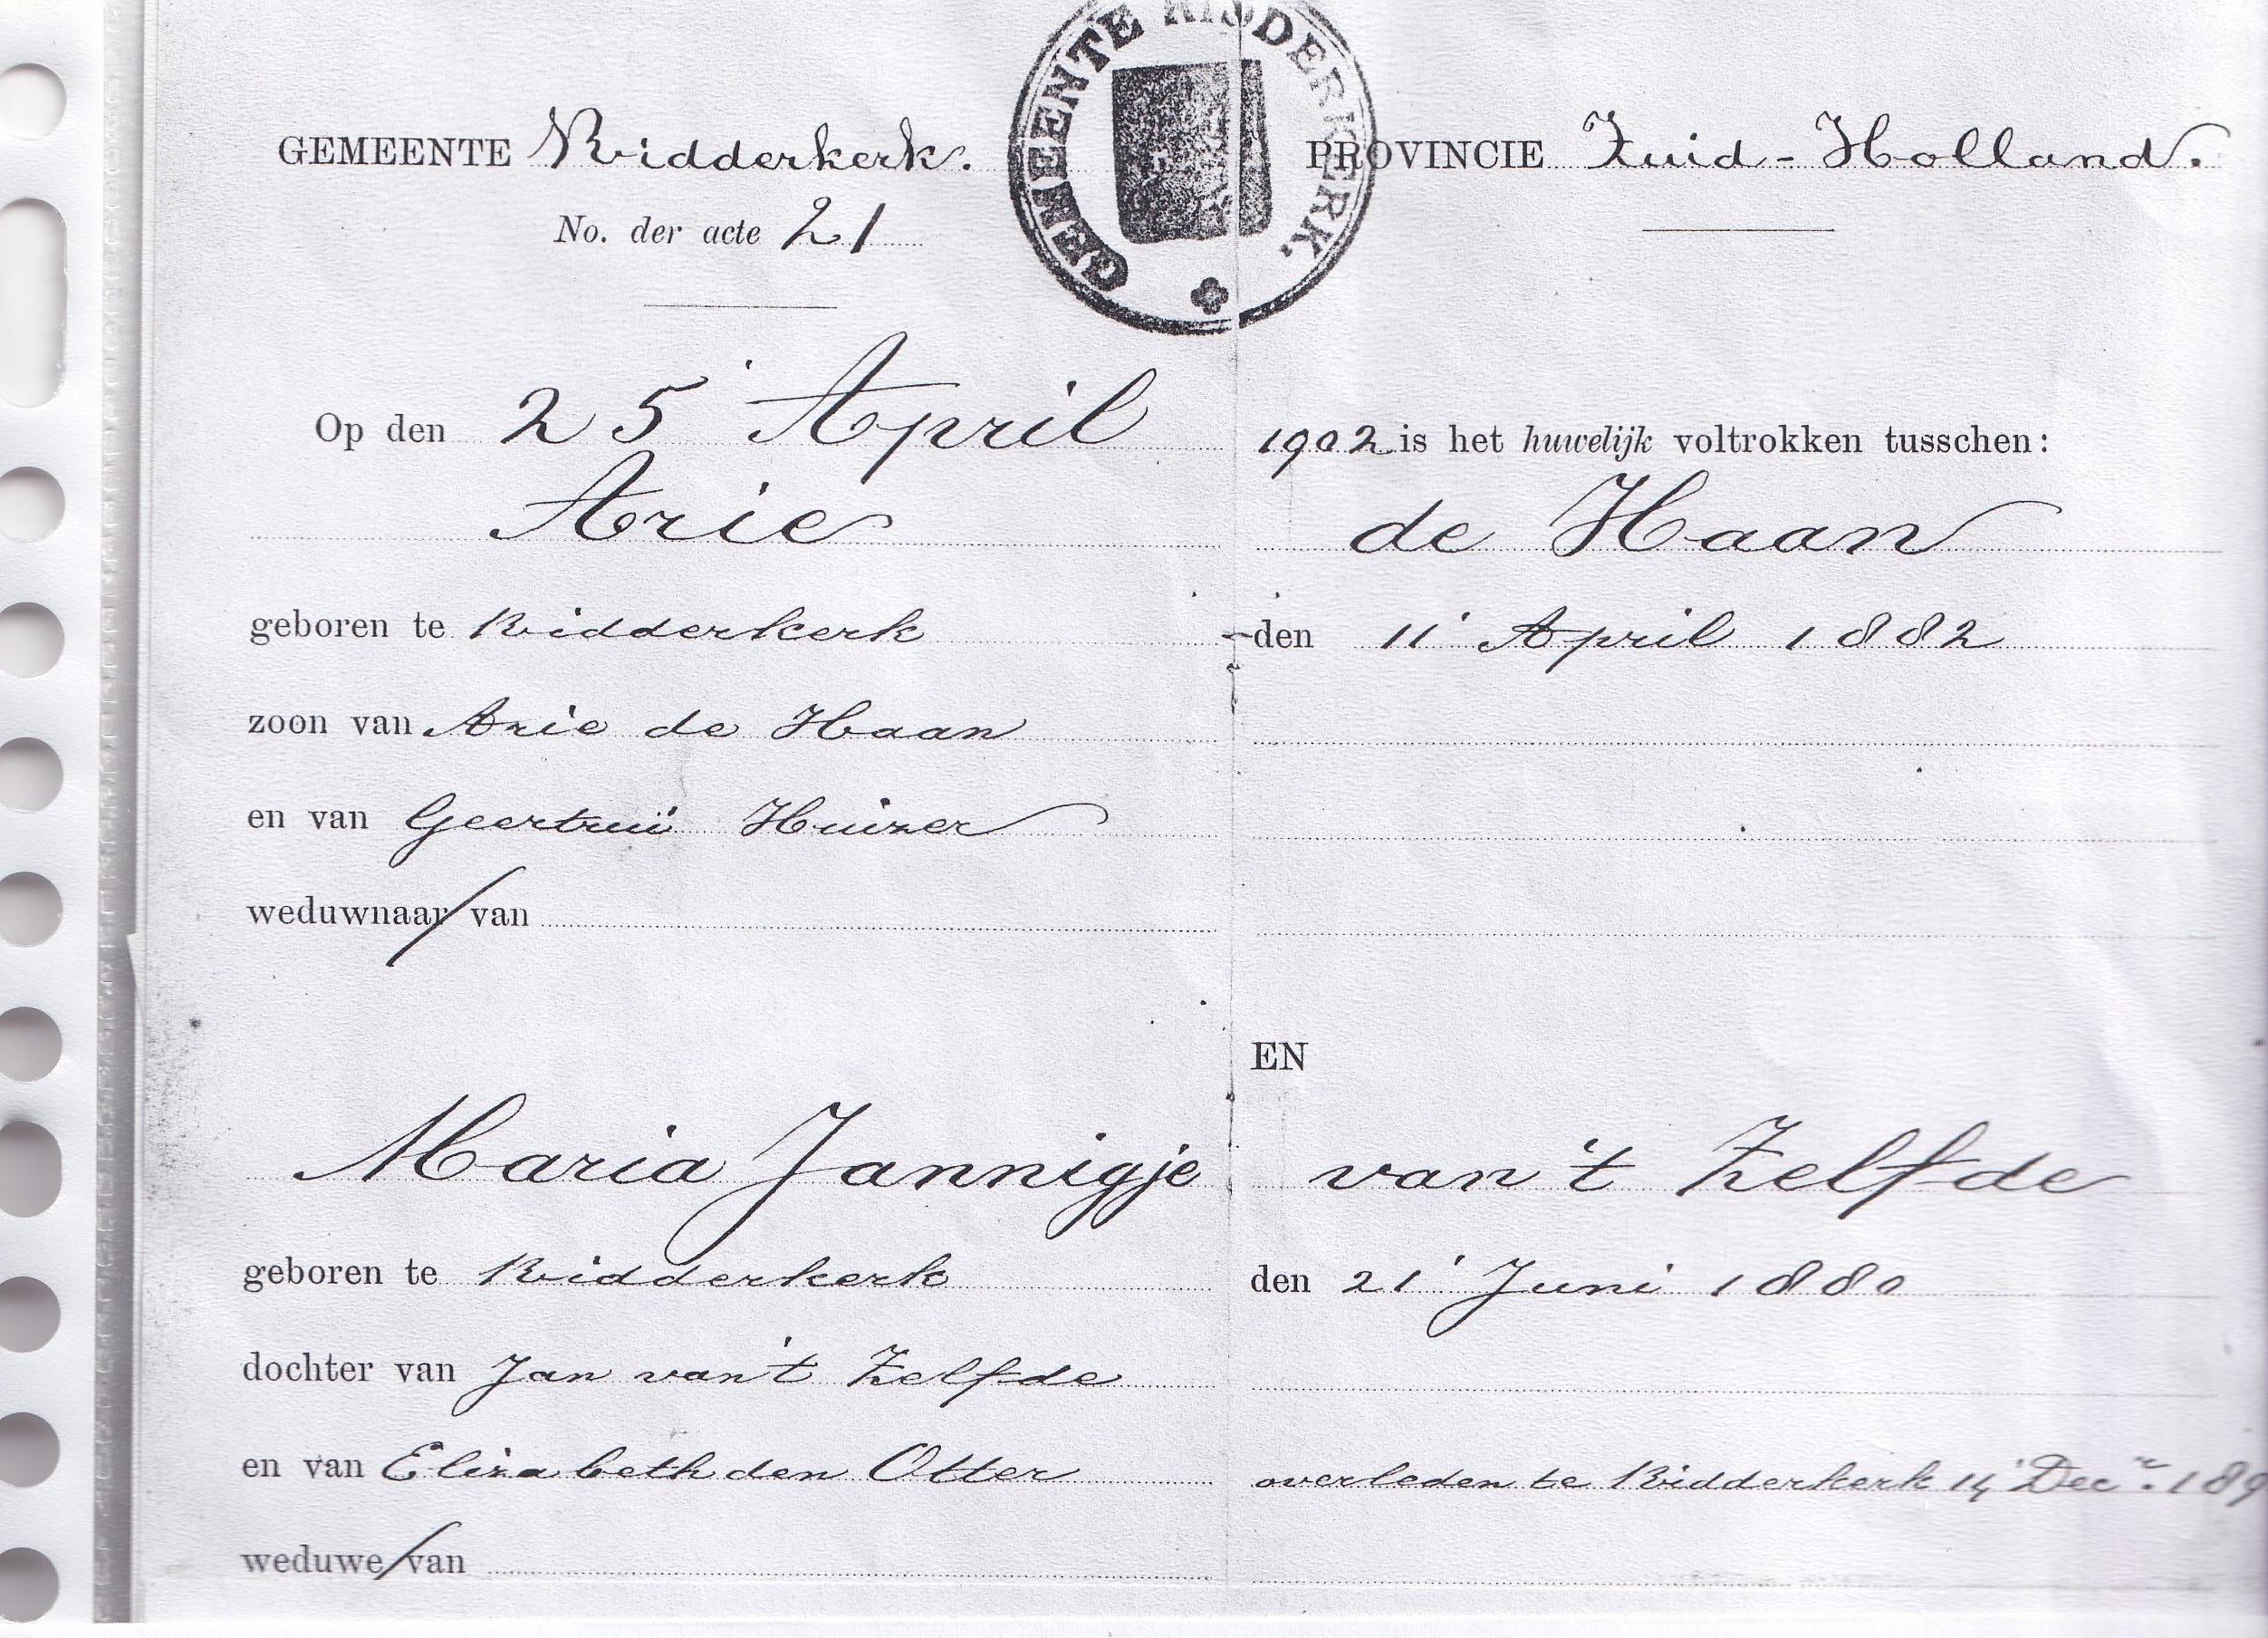 GEMEENTE RIDDERKERK.
GEMEENTE Ridderkerk. PROVINCIE Zuid-Holland.
No. der acte 21
Op den 25 April 1902 is het huwelijk voltrokken tusschen:
Arie de Haan
geboren te Ridderkerk den 11 April 1882
zoon van Arie de Haan
en van Geertrui Huizer
weduwnaar van
EN
Maria Jannigje van 't Zelfde
geboren te Ridderkerk den 21 Juni 1880
dochter van Jan van 't Zelfde
en van Elizabeth den Otter overleden te Ridderkerk 14 Decr. 189
weduwe van